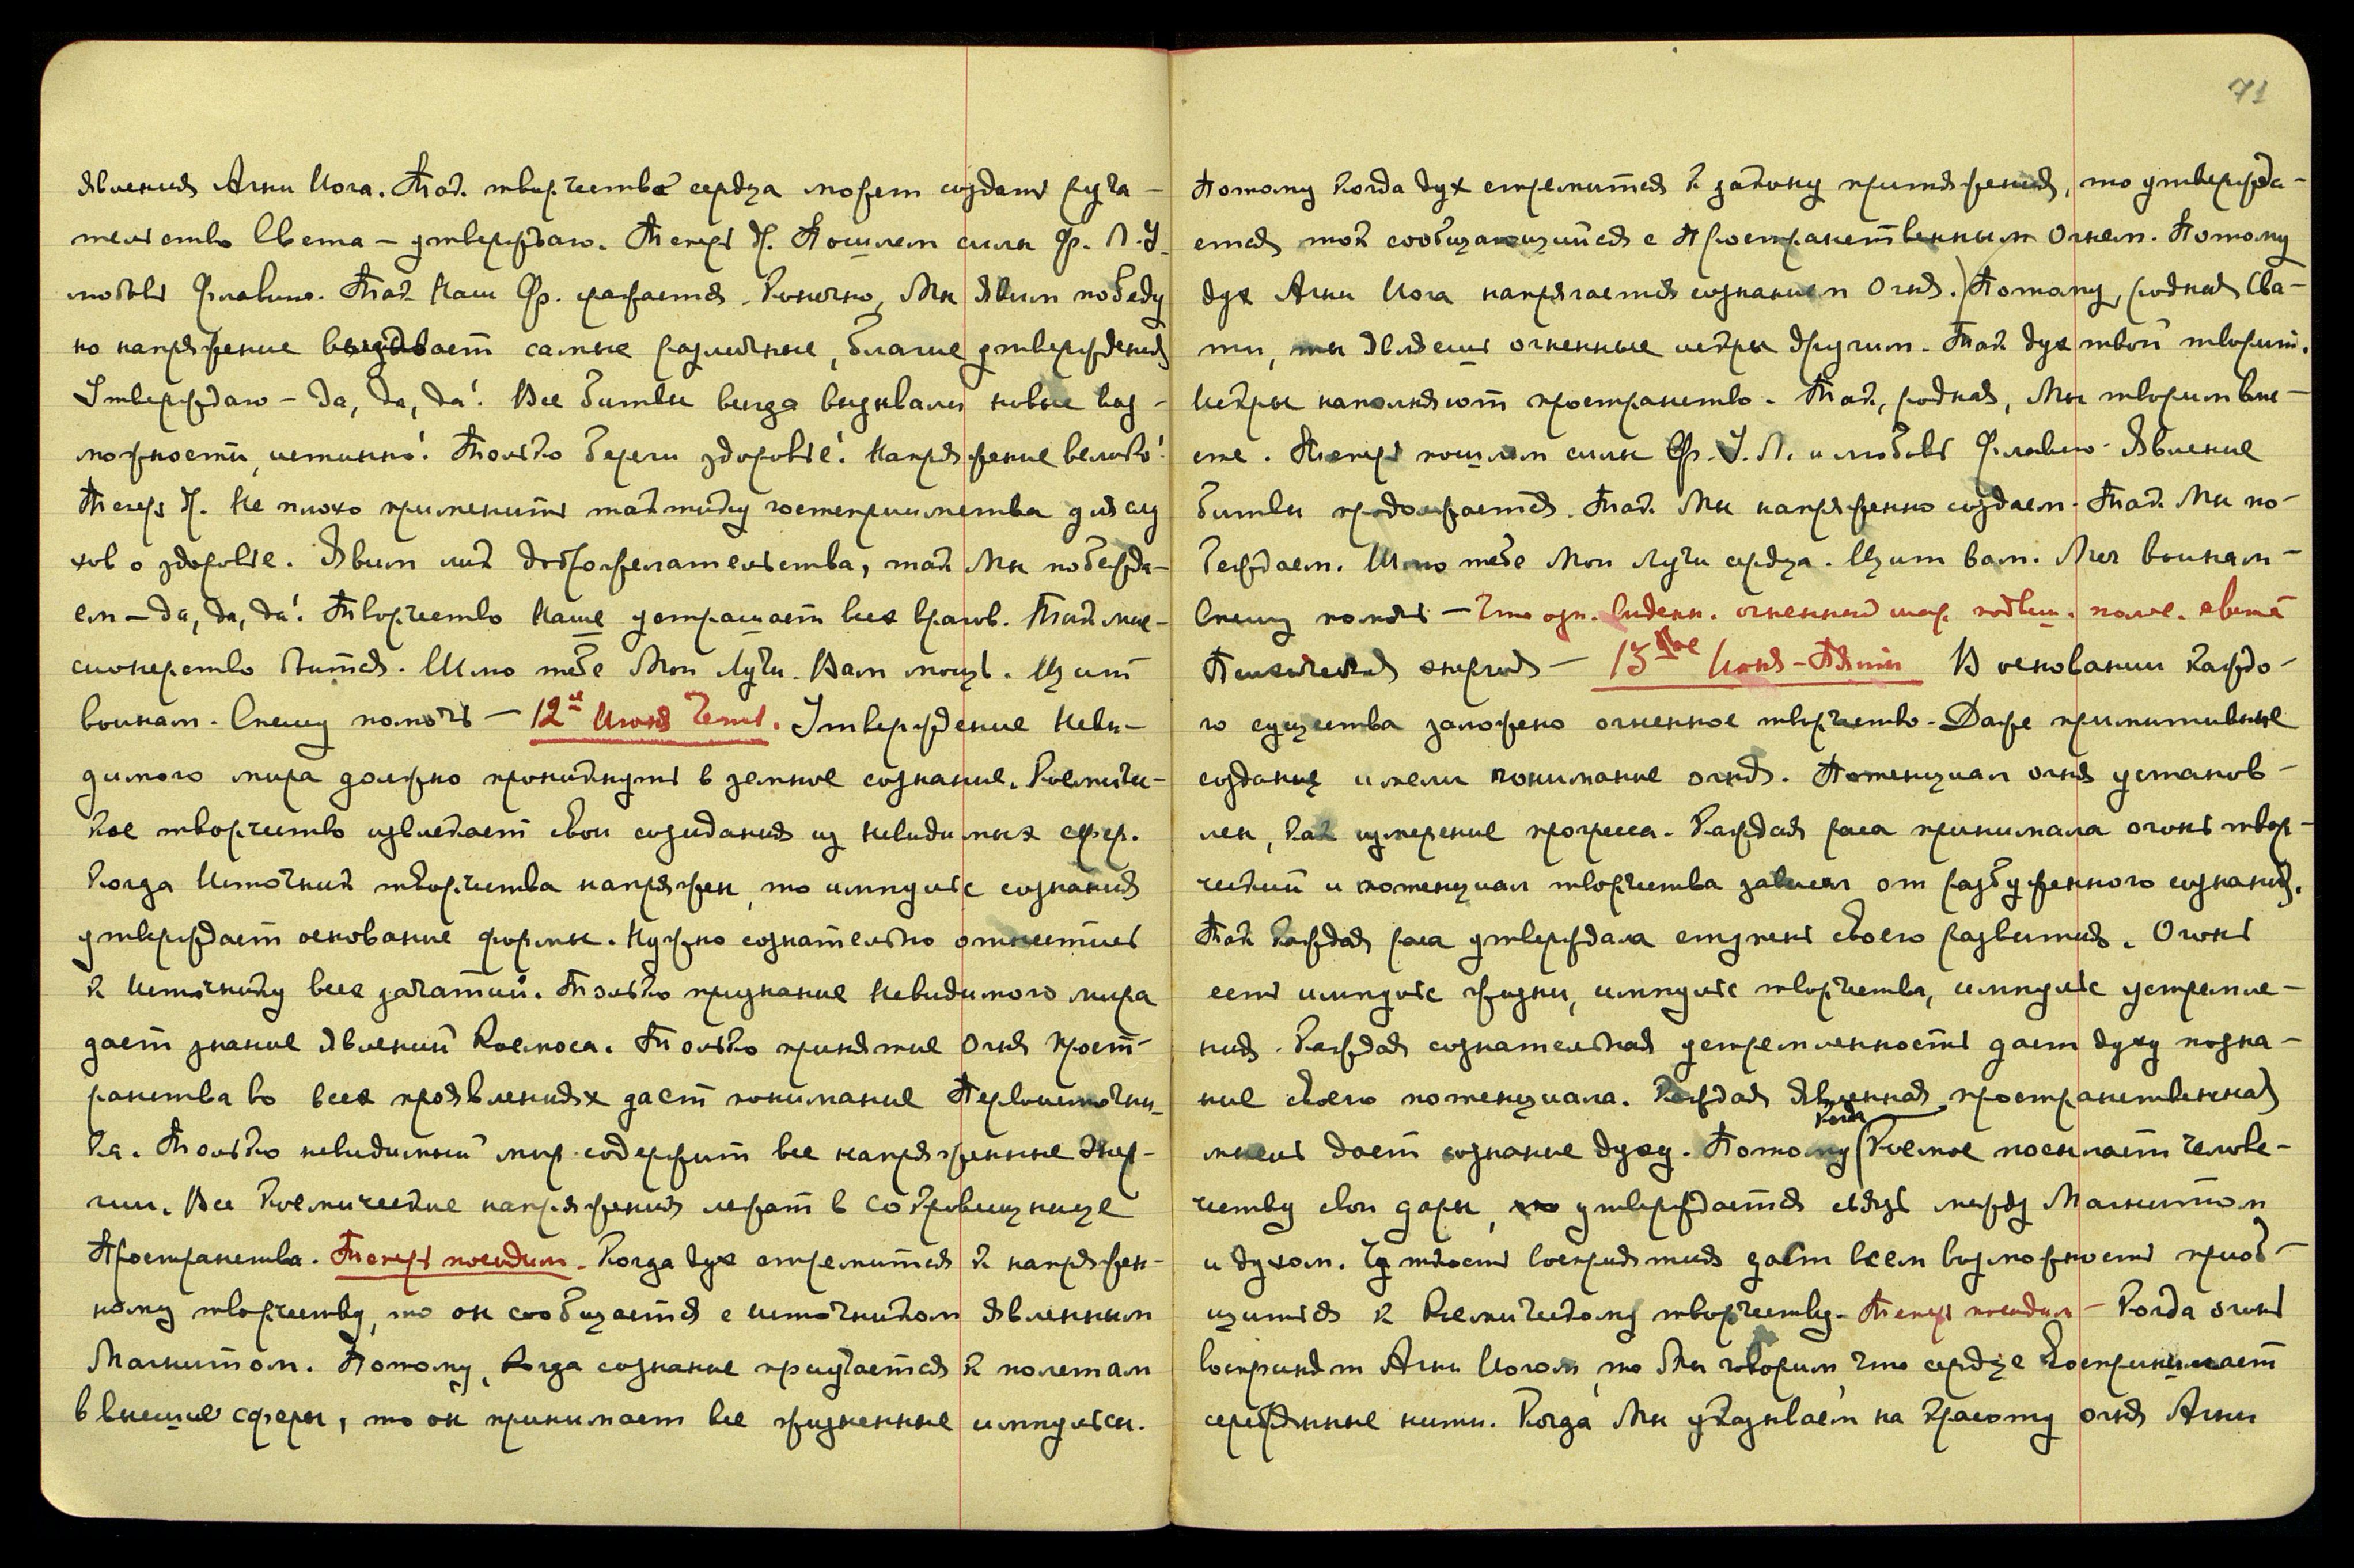 явления Агни Йога. Так творчество сердца может создать руча-
тельство Света – утверждаю. Теперь Н. Пошлем силы Фр. Л. У
любовь Флавию. Так Наш Фр. сражается. Конечно, Мы явим победу
но напряжение вызывает самые различные, благие утверждения
Утверждаю – да, да, да! Все битвы всегда вызвали новые воз-
можности, истинно! Только береги здоровье! Напряжение велико!
Теперь Н. Не плохо применить тактику гостеприимства для слу
хов о здоровье. Явим лик доброжелательства, так Мы побежда-
ем – да, да, да! Творчество Наше устрашает всех врагов. Так
Шлю тебе Мои Лучи. Вам мощь. Щит
воинам. Спешу помочь – 12е Июня Четв. Утверждение Неви-
димого мира должно проникнуть в земное сознание. Космичес-
кое творчество извлекает свои созидания из невидимых сфер.
Когда Источник творчества напряжен, то импульс сознания
утверждает основание формы. Нужно сознательно отнестись
к Источнику всех зачатий. Только признание Невидимого мира
дает знание явлений Космоса. Только принятие Огня Прост-
ранства во всех проявлениях дает понимание Первоисточни-
ка. Только невидимый мир содержит все напряженные энер-
гии. Все Космические напряжения лежат в Сокровищнице
Пространства. Теперь посидим. Когда дух стремится к напряжен-
ному творчеству, то он сообщается с источником явленным
Магнитом. Потому, когда сознание приучается к полетам
в высшие сферы, то он принимает все жизненные импульсы.
71
Потому когда дух стремится к закону притяжения, то утвержда-
ется ток сообщающийся с Пространственным Огнем. Потому
дух Агни Йога напрягается сознанием Огня.) Потому, родная Сва-
ти, ты являешь огненные искры другим. Так дух твой творит.
Искры наполняют пространство. Так, родная, Мы творим вме-
сте. Теперь пошлем силы Фр. У. Л. и любовь Флавию. Явление
битвы продолжается. Так Мы напряженно создаем. Так Мы по-
беждаем. Шлю тебе Мои Лучи сердца. Щит вам. Меч воинам –
Спешу помочь – Что озн. виденн. огненный шар
Психическая энергия – 13ое Июня – Пятн В основании каждо-
го существа заложено огненное творчество. Даже примитивные
создания имели понимание огня. Потенциал огня установ-
лен, как измерение прогресса. Каждая раса принимала огонь твор-
ческий и потенциал творчества зависел от разбуженного сознания.
Так каждая раса утверждала ступень своего развития. Огонь
есть импульс жизни, импульс творчества, импульс устремле-
ния. Каждая сознательная устремленность дает духу позна-
ние своего потенциала. Каждая явленная пространственная
мысль дает сознание духу. Потому (когда Космос посылает челове-
честву свои дары, то утверждается связь между Магнитом
и духом. Чуткость восприятия дает всем возможность приоб-
щиться к Космическому творчеству. Теперь посидим – Когда огонь
воспринят Агни Йогом, то Мы говорим, что сердце воспринимает
сердечные нити. Когда Мы указываем на красоту огня Агни